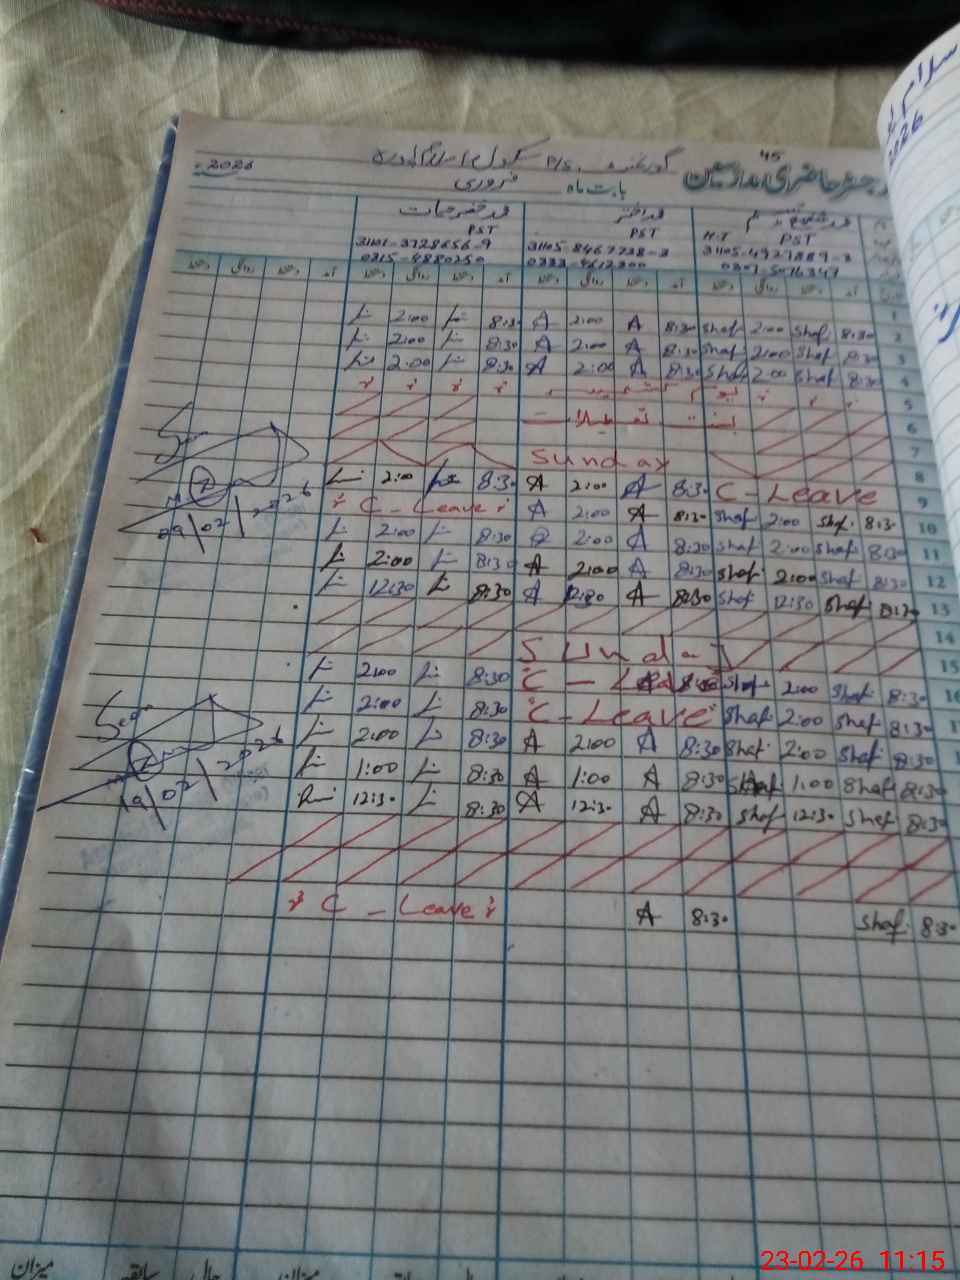 سلام
2026
45
رجسٹر حاضری مدارسین گورنمنٹ P/S. سکول اسلام پورہ
بابت ماہ فروری 2026
محمد شفیع محمد اختر محمد خضر حیات
H.T PST PST PST
31105-4927889-3 31105-8467738-3 31101-3728656-9
0307-5076347 0333-4612300 0315-4880250
1
L 2:00 L 8:30 A 2:00 A 8:30 Shaf 2:00 Shaf 8:30 2
L 2:00 L 8:30 A 2:00 A 8:30 Shaf 2:00 Shaf 8:30 3
L 2:00 L 8:30 A 2:00 A 8:30 Shaf 2:00 Shaf 8:30 4
یوم کشمیر 5
6
7
Sunday 8
L 2:00 8:30 A 2:00 A 8:30 C - Leave 9
C - Leave A 2:00 A 8:30 Shaf 2:00 Shaf 8:30 10
L 2:00 L 8:30 2:00 A 8:30 Shaf 2:00 Shaf 8:30 11
L 2:00 L 8:30 A 2:00 A 8:30 Shaf 2:00 Shaf 8:30 12
L 12:30 L 8:30 A 12:30 A 8:30 Shaf 12:30 Shaf 8:30 13
14
Sunday 15
L 2:00 L 8:30 C - Leave Shaf 2:00 Shaf 8:30 16
L 2:00 L 8:30 C - Leave Shaf 2:00 Shaf 8:30
L 2:00 L 8:30 A 2:00 A 8:30 Shaf 2:00 Shaf 8:30
L 1:00 L 8:30 A 1:00 A 8:30 Shaf 1:00 Shaf 8:30
12:30 L 8:30 A 12:30 A 8:30 Shaf 12:30 Shaf 8:30
C - Leave A 8:30 Shaf 8:30
09/02/2026
19/02/2026
میزان سابقہ حال میزان
23-02-26 11:15